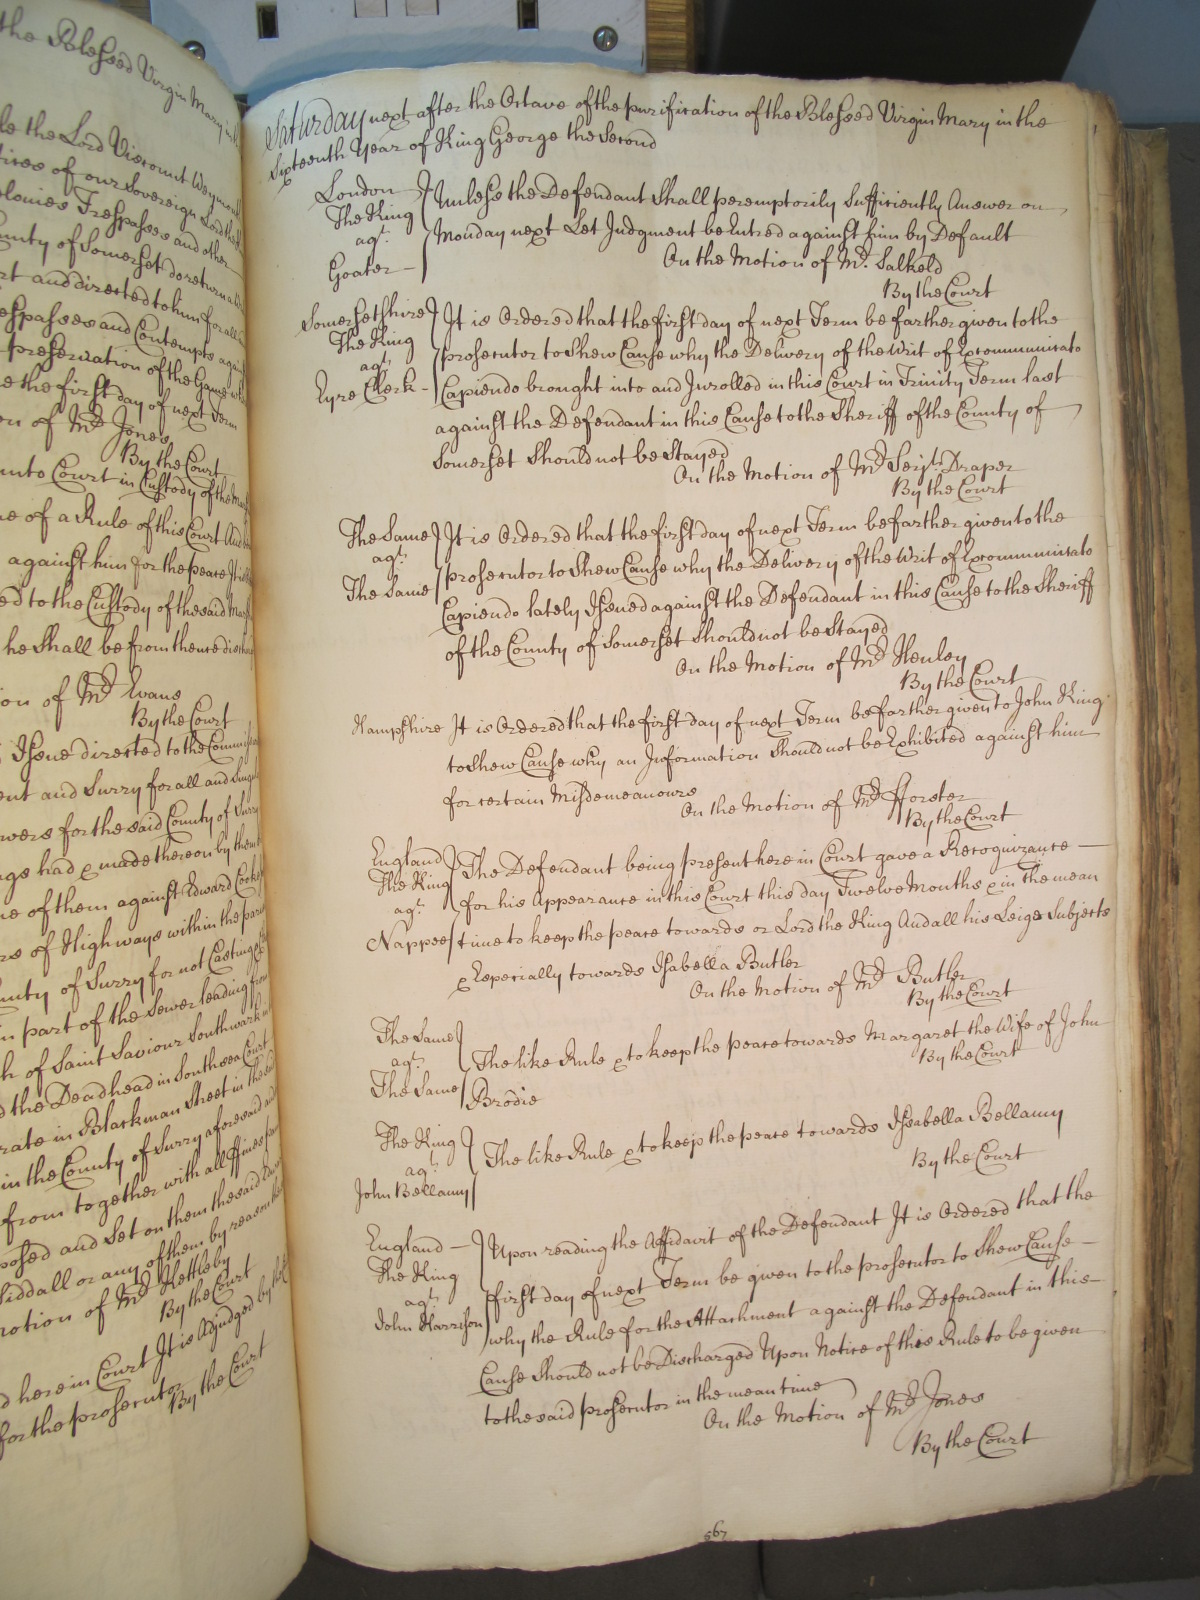 the Blessed Virgin Mary in the
le the Lord Viscount Weymouth
tices of our Sovereign Lord the
elonies Trespasses and other
unty of Somerset do return a
rt and directed to him for all
espasses and Contempts again
preservation of the Game
e the first day of next Term
on of Mr. Jones
By the Court
unto Court in Custody of the Mar
ue of a Rule of this Court And
against him for the peace It is
ed to the Custody of the said Mar
he Shall be from thence disch
ion of Mr. Evans
By the Court
Issue directed to the Commiss
ent and Surry for all and Singul
wers for the said County of Surry
ngs had & made thereon by them
ne of them against Edward Cooke
rs of Highways within the paris
unty of Surry for not Casting
in part of the Sewer leading from
h of Saint Saviour Southwark in
d the Deadhead in Southsea Court
rate in Blackman Street in the said
in the County of Surry aforesaid and
from together with all ffines
posed and Set on them the said
Siddall or any of them by reason
motion of Mr. Kettleby
By the Court
d here in Court It is Adjudged by the
for the prosecutor
By the Court
Saturday next after the Octave of the purification of the Blessed Virgin Mary in the
Sixteenth Year of King George the Second
London Unless the Defendant Shall peremptorily Sufficiently Answer on
The King
agt. Monday next Let Judgment be Entred against him by Default
Goater On the Motion of Mr. Salkeld
By the Court
Somersetshire It is Ordered that the first day of next Term be farther given to the
The King prosecutor to Shew Cause why the Delivery of the Writ of Excommunicato
agt.
Eyre Clerk Capiendo brought into and Inrolled in this Court in Trinity Term last
against the Defendant in this Cause to the Sheriff of the County of
Somerset Should not be Stayed
On the Motion of Mr. Serjt. Draper
By the Court
The Same It is Ordered that the first day of next Term be farther given to the
agt. prosecutor to Shew Cause why the Delivery of the Writ of Excommunicato
The Same Capiendo lately Issued against the Defendant in this Cause to the Sheriff
of the County of Somerset Should not be Stayed
On the Motion of Mr. Henley
By the Court
Hampshire It is Ordered that the first day of next Term be farther given to John King
to Shew Cause why an Information Should not be Exhibited against him
for certain Misdemeanours
On the Motion of Mr. Fforster
By the Court
England The Defendant being present here in Court gave a Recognizance
The King
agt. for his Appearance in this Court this day Twelve Months & in the mean
Nappee time to keep the peace towards or Lord the King And all his Leige Subjects
& Especially towards Isabella Butler
On the Motion of Mr. Butler
By the Court
The Same
agt. The like Rule & to keep the peace towards Margaret the Wife of John
The Same Brodie
By the Court
The King
agt. The like Rule & to keep the peace towards Isabella Bellamy
John Bellamy
By the Court
England Upon reading the Affidavit of the Defendant It is Ordered that the
The King first day of next Term be given to the prosecutor to Shew Cause
agt.
John Harrison why the Rule for the Attachment against the Defendant in this
Cause Should not be Discharged Upon Notice of this Rule to be given
to the said prosecutor in the mean time
On the Motion of Mr. Jones
By the Court
567